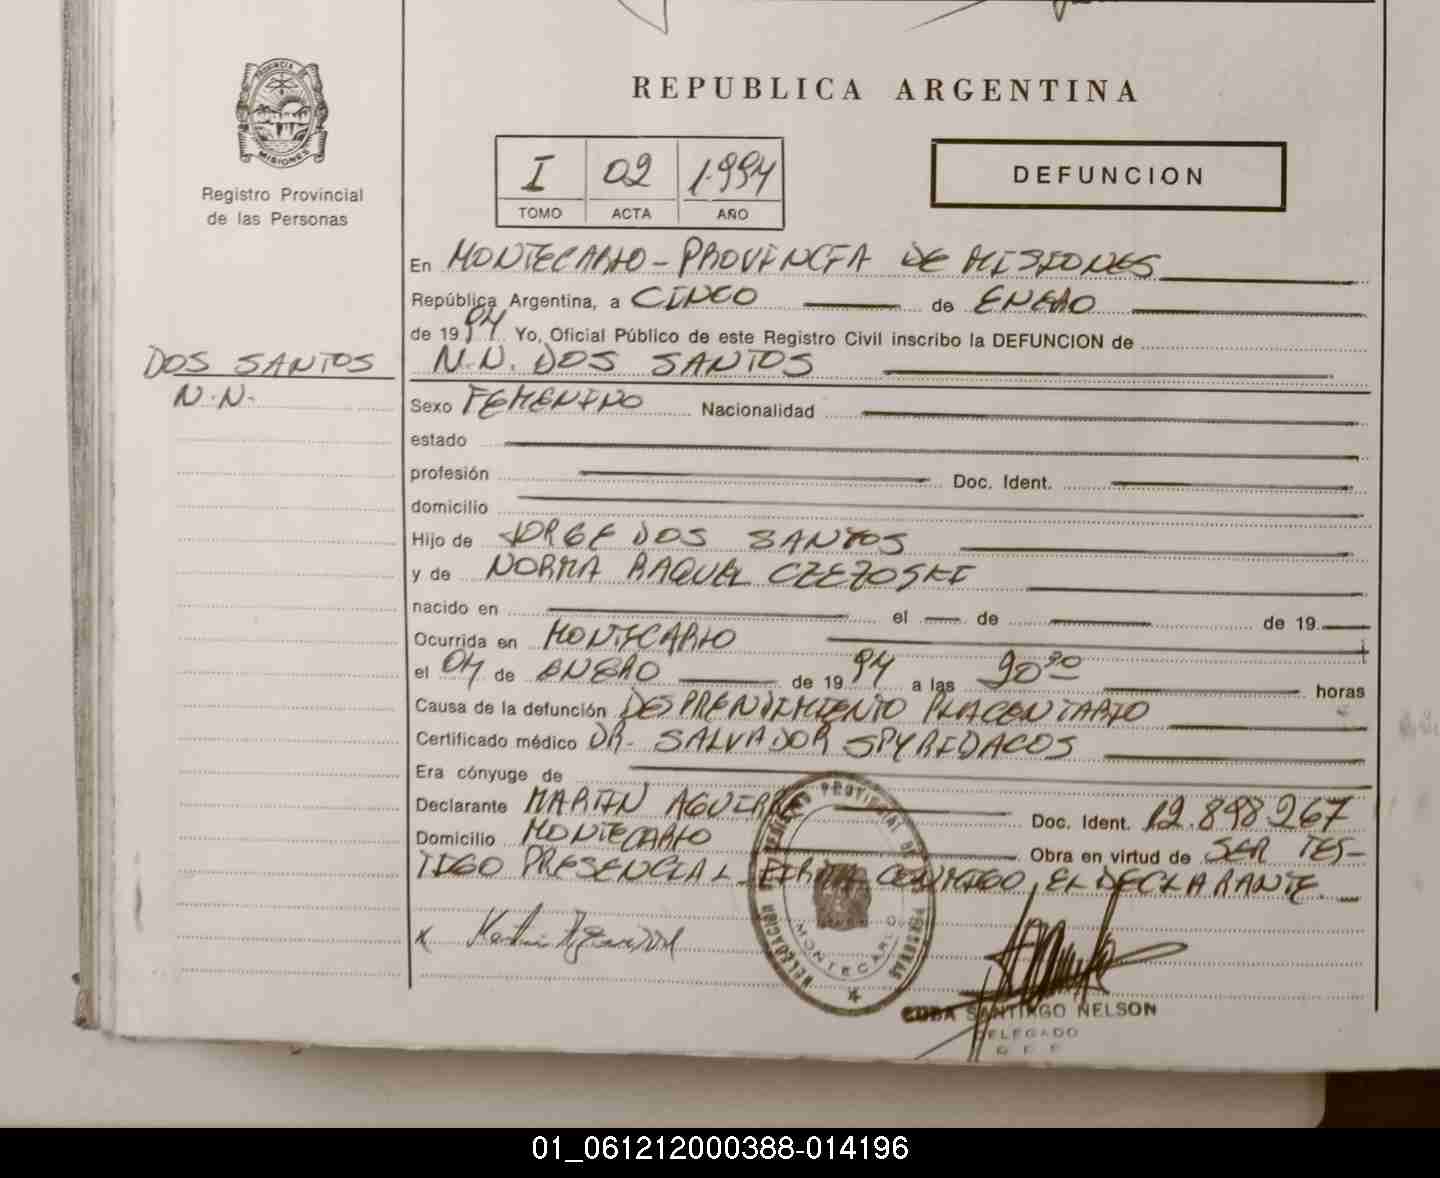 PROVINCIA DE
MISIONES
Registro Provincial
de las Personas
REPUBLICA ARGENTINA
I 02 1.994
TOMO ACTA AÑO
DEFUNCION
En MONTECARLO - PROVINCIA DE MISIONES
República Argentina, a CINCO de ENERO
de 1994 Yo, Oficial Público de este Registro Civil inscribo la DEFUNCION de
DOS SANTOS
N.N.
N.N. DOS SANTOS
Sexo FEMENINO Nacionalidad
estado
profesión Doc. Ident.
domicilio
Hijo de JORGE DOS SANTOS
y de NORMA RAQUEL CZEZOSKI
nacido en el de de 19
Ocurrida en MONTECARLO
el 04 de ENERO de 1994 a las horas
Causa de la defunción DESPRENDIMIENTO PLACENTARIO
Certificado médico DR. SALVADOR SPYRIDACOS
Era cónyuge de
Declarante MARTIN AGUIRRE Doc. Ident. 12.898.267
Domicilio MONTECARLO Obra en virtud de SER TES-
TIGO PRESENCIAL - FIRMA CONMIGO, EL DECLARANTE.
DELEGACION REGISTRO PROVINCIAL DE LAS PERSONAS
MONTECARLO
X
SANTIAGO NELSON
DELEGADO
01_061212000388-014196